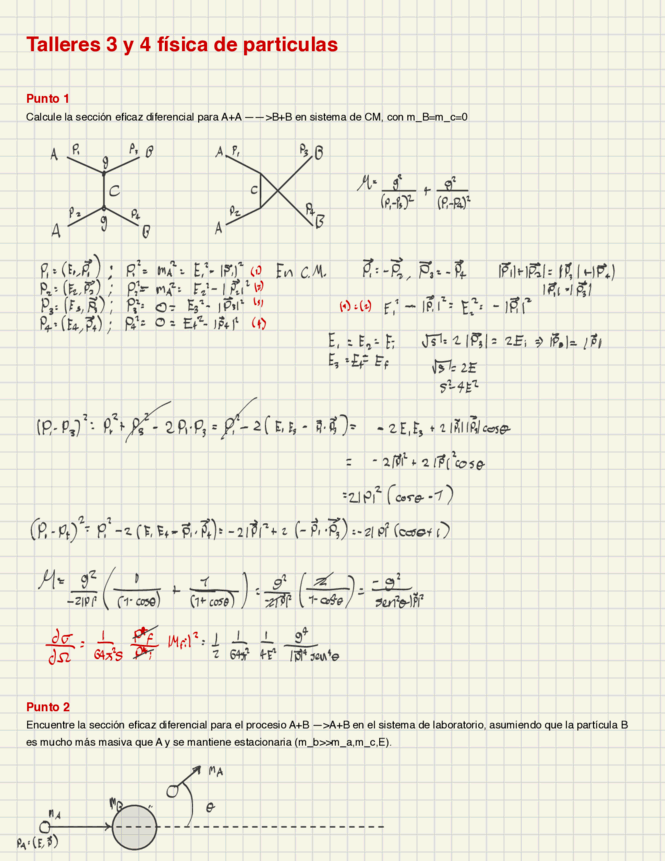 Talleres 3 y 4 física de particulas
Punto 1
Calcule la sección eficaz diferencial para A+A ——>B+B en sistema de CM, con m_B=m_c=0
A P₁ P₃ B
g
C
g
A P₂ P₄ B
A P₁ P₃ B
C
A P₂ P₄ B
M = g²/(P₁-P₃)² + g²/(P₁-P₄)²
P₁ = (E₁, P⃗₁) ; P₁² = m_A² = E₁² - |P⃗₁|² (1) En C.M. P⃗₁ = -P⃗₂, P⃗₃ = -P⃗₄
P₂ = (E₂, P⃗₂) ; P₂² = m_A² = E₂² - |P⃗₂|² (2)
P₃ = (E₃, P⃗₃) ; P₃² = 0 = E₃² - |P⃗₃|²
P₄ = (E₄, P⃗₄) ; P₄² = 0 = E₄² - |P⃗₄|² (4)
E₁ = E₂ = Eᵢ
√s = 2E
(P₁-P₃)² = P₁² + P₃² - 2P₁·P₃ = P₁² - 2(E₁E₃ - P⃗₁·P⃗₃) = -2E₁E₃ + 2|P⃗₁||P⃗₃|cosθ
= -2|P⃗|² + 2|P⃗|²cosθ
= 2|P|²(cosθ - 1)
(P₁-P₄)² = P₁² - 2(E₁E₄ - P⃗₁·P⃗₄) = -2|P⃗|² + 2(-P⃗₁·P⃗₃) = -2|P|²(cosθ+1)
M = g²/-2|P|² (1/(1-cosθ) + 1/(1+cosθ)) = g²/-2|P|² (2/1-cos²θ) = -g²/sen²θ|P|²
∂σ/∂Ω = 1/64π²s P*f/P*i |Mfi|² = 1/2 1/64π² 1/4E² g⁴/|P|⁴sen⁴θ
Punto 2
Encuentre la sección eficaz diferencial para el procesio A+B —>A+B en el sistema de laboratorio, asumiendo que la partícula B
es mucho más masiva que A y se mantiene estacionaria (m_b>>m_a,m_c,E).
m_A
m_B
θ
m_A
P_A = (E, P⃗)